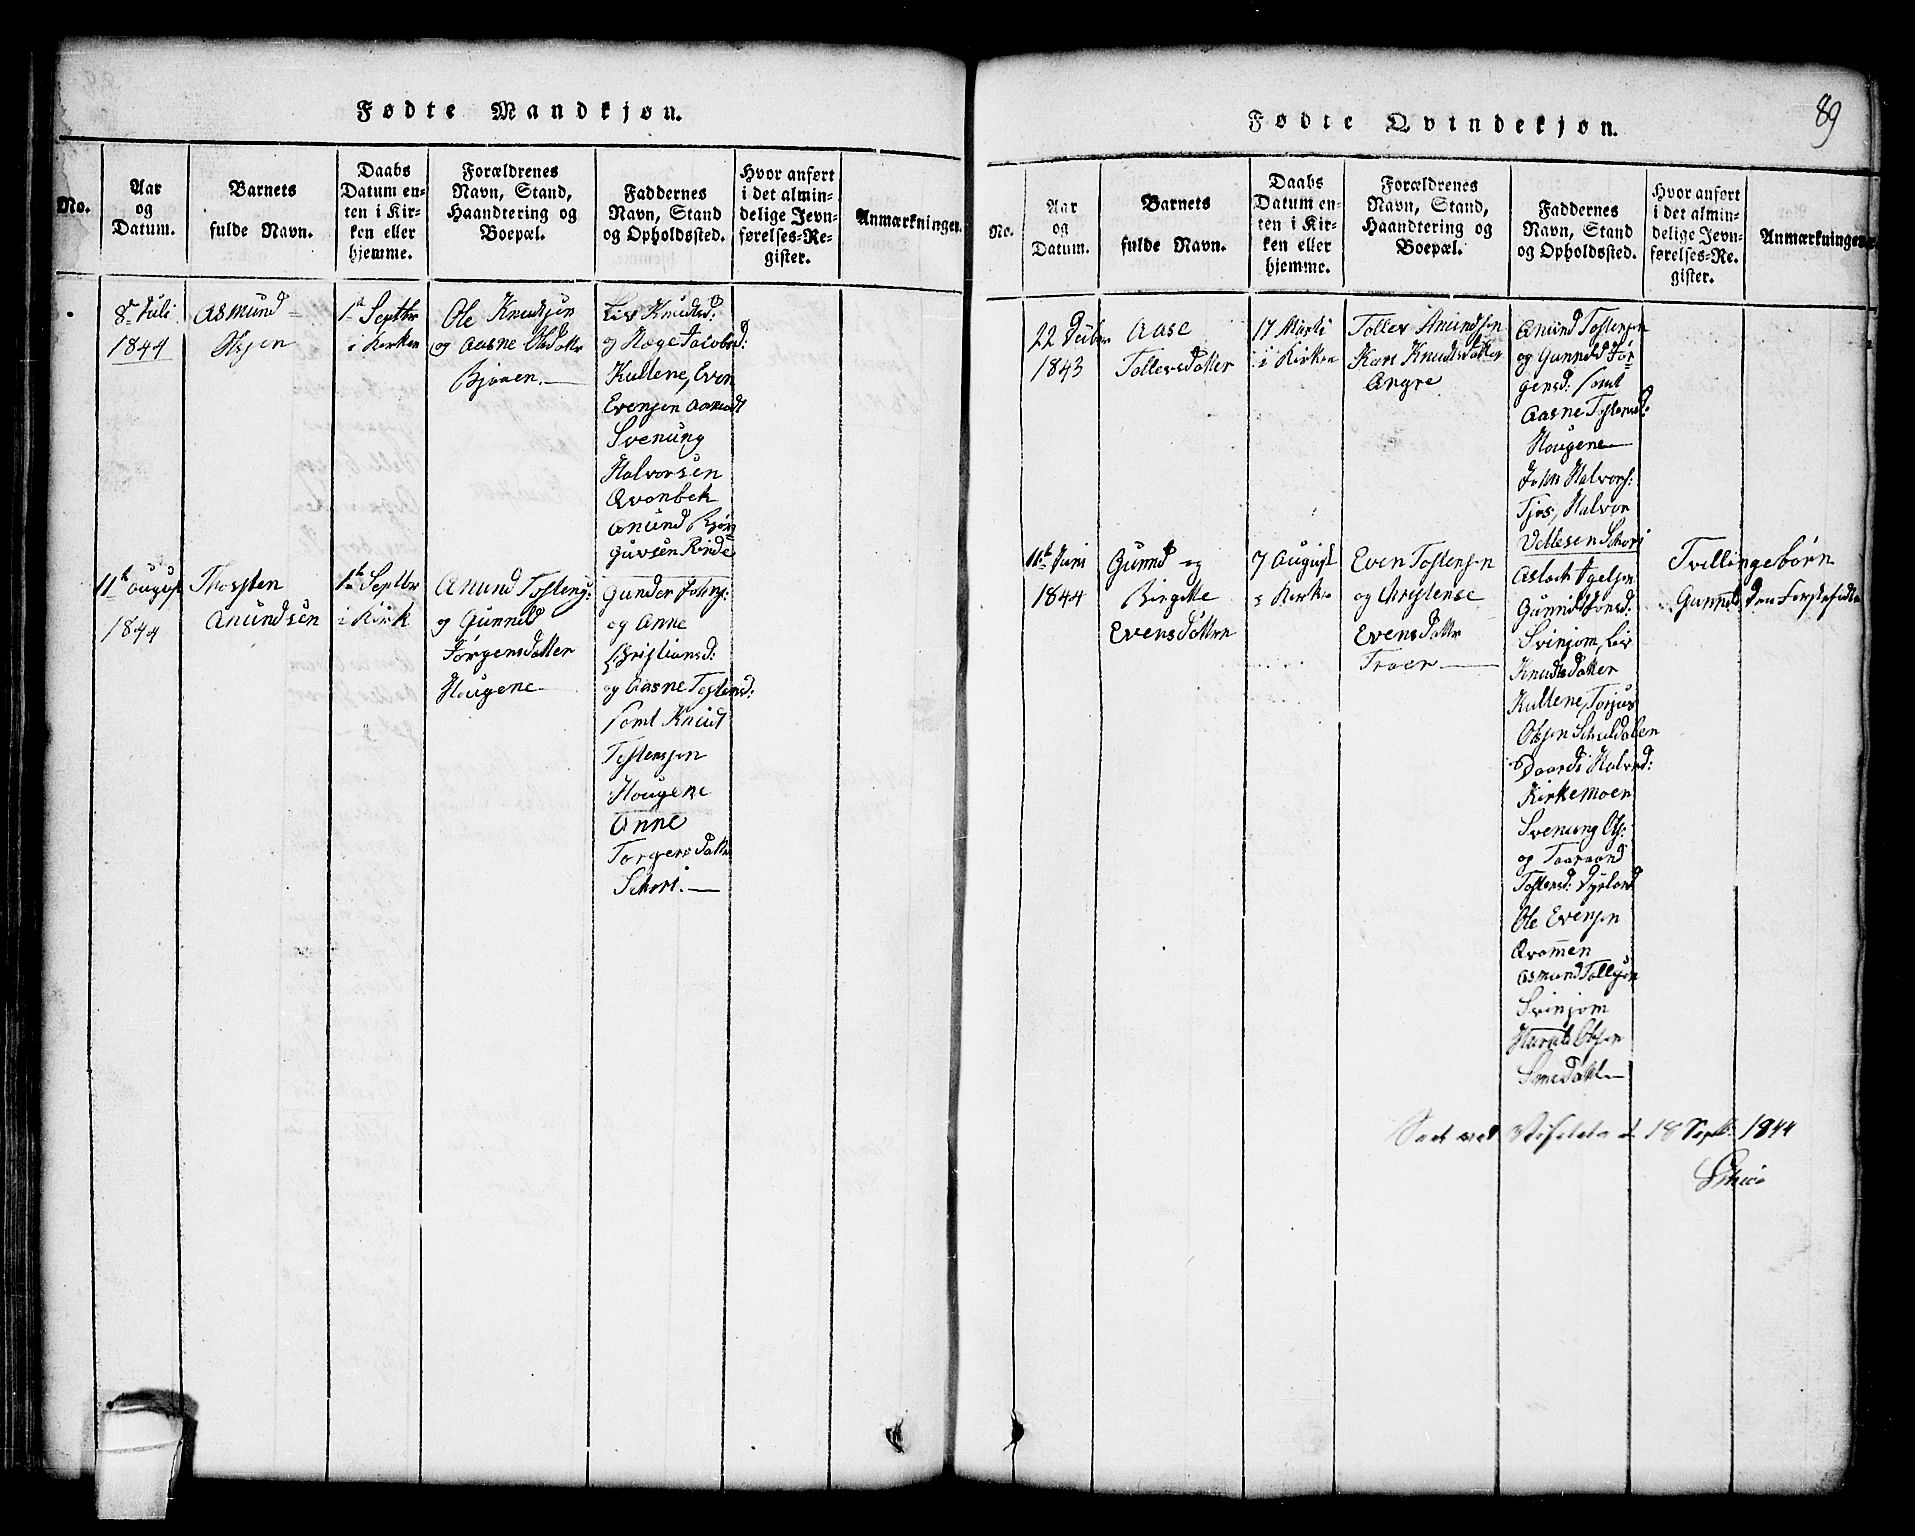 Fødte Mandkjøn.
No.
Aar
og
Datum.
Barnets
fulde Navn.
Daabs
Datum en-
ten i Kir-
ken eller
hjemme.
Forældrenes
Navn, Stand,
Haandtering og
Boepæl.
Faddernes
Navn, Stand
og Opholdssted.
Hvor anført
i det almin-
delige Jevn-
førelses-Re-
gister.
Anmærkninger.
8de Juli
1844
Asmund
Olsen
1te Septbr
i Kirken
Ole Knudsen
og Aasne Olsdatter
Bjønen.
Liv Knudsd:
og Hæge Jacobsd:
Kultene, Even
Evensen
Svenung
Halvorsen
Qvanbek
Anund Bjøn
guvsen Rinde
11te August
1844
Thorsten
Anundsen
1te Septbr
i Kirk
Anund Tostens:
og Gunnild
Jørgensdatter
Hougene
Gunder Johns:
og Anne
Christiansd:
og Aasne Tostensd:
samt Knud
Tostensen
Hougene
Anne
Torgersdatter
Schori.
Fødte Qvindekjøn.
89
No.
Aar
og
Datum.
Barnets
fulde Navn.
Daabs
Datum en-
ten i Kir-
ken eller
hjemme.
Forældrenes
Navn, Stand,
Haandtering og
Boepæl.
Faddernes
Navn, Stand
og Opholdssted.
Hvor anført
i det almin-
delige Jevn-
førelses-Re-
gister.
Anmærkninger
22
1843
Aase
Tollevsdatter
17 Marti
i Kirken
Tollev Anundsen
Kari Knudsdatter
Angre
Anund Tostensen
og Gunnild Jør-
gensd: samt
Aasne Tostensd:
Hougene
John Halvors:
Tjos, Halvor
Vetlesen Schori
11te Juni
1844
Gunnild og
Birgitte
Evensdøttre
7 August
i Kirke
Even Tostensen
og Christense
Evensdattr
Troer
Aslach
Gunnild Jonsd:
Svinjom, Liv
Knudsdatter
Kultene, Torjus
Olsen Schuldalen
Daardi Halvsd:
Kirkemoen
Svenung Ols:
og Taaraand
Tostensd: Dyrland
Ole Evensen
Qvammen
Asmund Tollevsen
Svinjom
Harald Olsen
Smedal
Tvillingebørn
Gunnild, den Førstefødte
Seet ved Visitats d. 18 Septbr. 1844